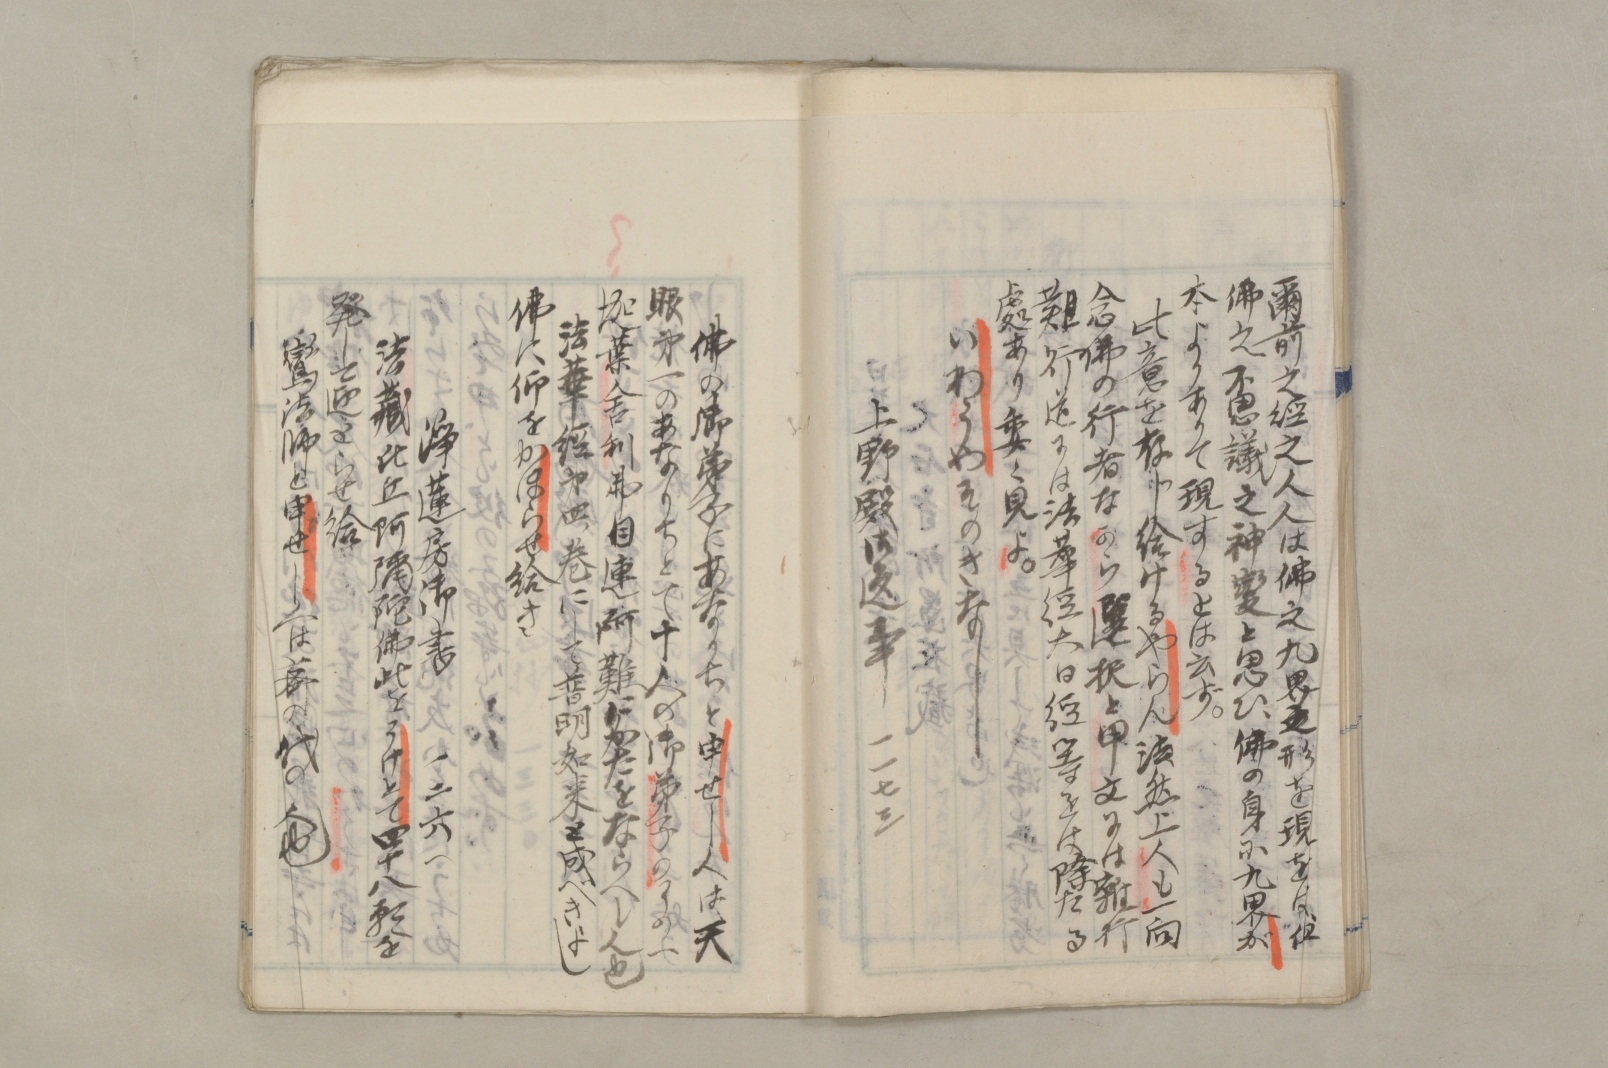 爾前之經之人人は佛之九界之形を現をは但
佛之不思議之神變と思ひ、佛の身に九界が
本よりありて現するとは云ず。
此意を存し給けるやらん法然上人も一向
念佛の行者なから選択と申文には雜行
難行道には法華經大日經等をは除たる
處あり委く見よ。
いわうわそのき
上野殿御返事 一一七三
佛の御弟子にあなりちと申せし人は天
眼第一のあなりちとて十人の御弟子の
迦葉舎利弗目連阿難にかたをならへし人也
法華經第四巻にして普明如来と成べきよし
佛に仰をかほらせ給き
淨蓮房御書 一二六一
法藏比丘阿彌陀佛此をうけとて四十八願を
発して迎とらせ給
鸞法師と申せし人は斎の代の人也